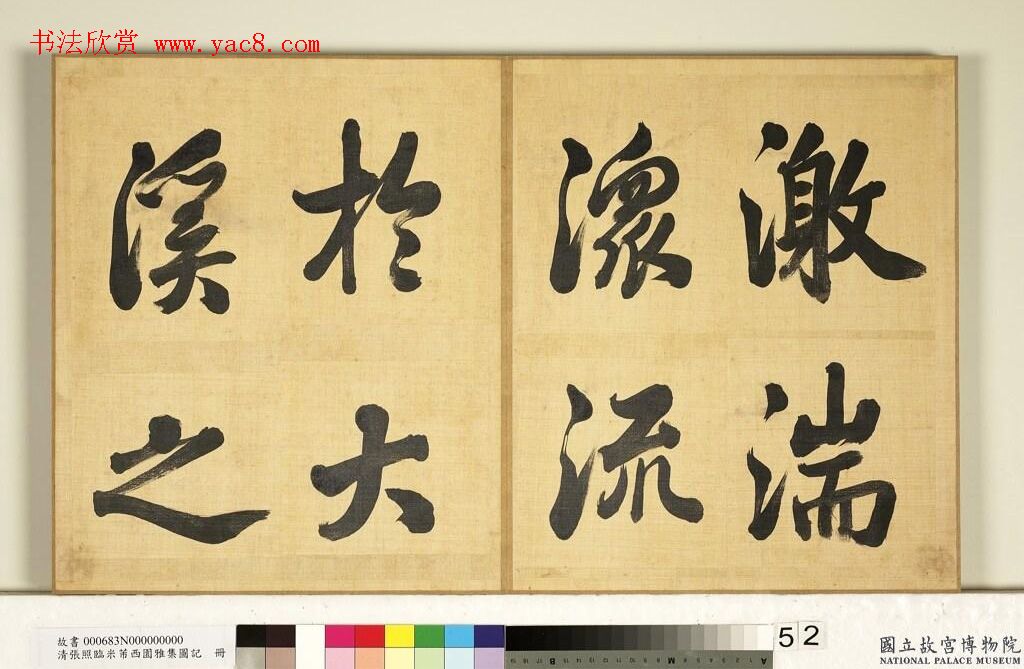 书法欣赏 www.yac8.com
激湍
潨流
於大
溪之
故書 000683N000000000
清張照臨米芾西園雅集圖記 冊
52
國立故宮博物院
NATIONAL PALACE MUSEUM